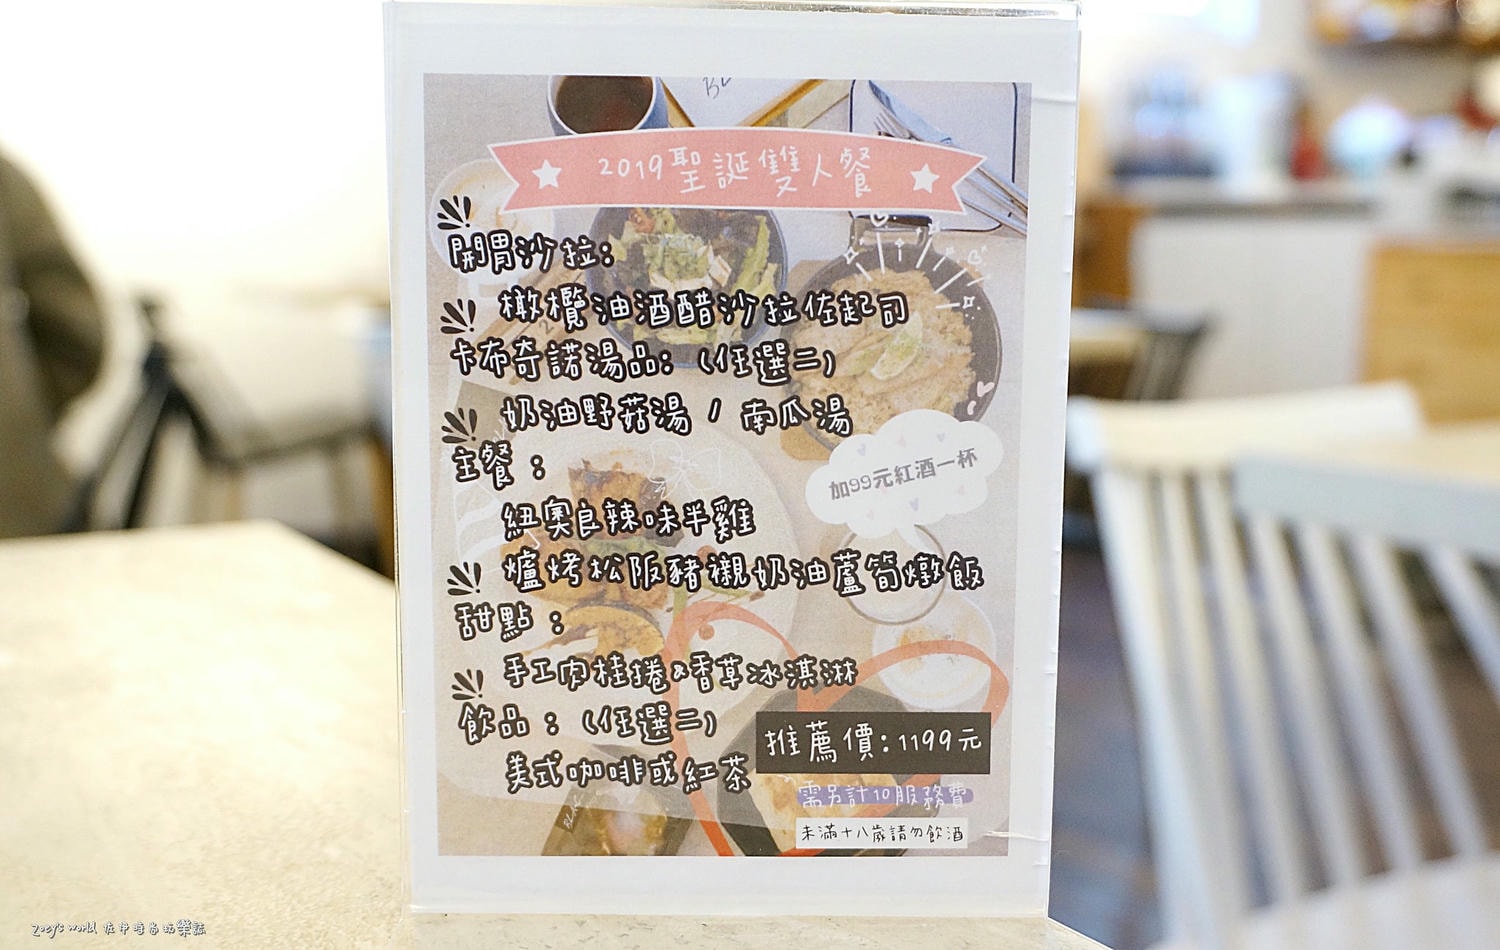 2019聖誕雙人餐
開胃沙拉:
橄欖油酒醋沙拉佐起司
卡布奇諾湯品:(任選二)
奶油野菇湯 / 南瓜湯
加99元紅酒一杯
主餐:
紐奧良辣味半雞
爐烤松阪豬襯奶油蘆筍燉飯
甜點:
手工肉桂捲&香草冰淇淋
飲品:(任選二)
美式咖啡或紅茶
推薦價:1199元
需另計10服務費
未滿十八歲請勿飲酒
Zoey's world